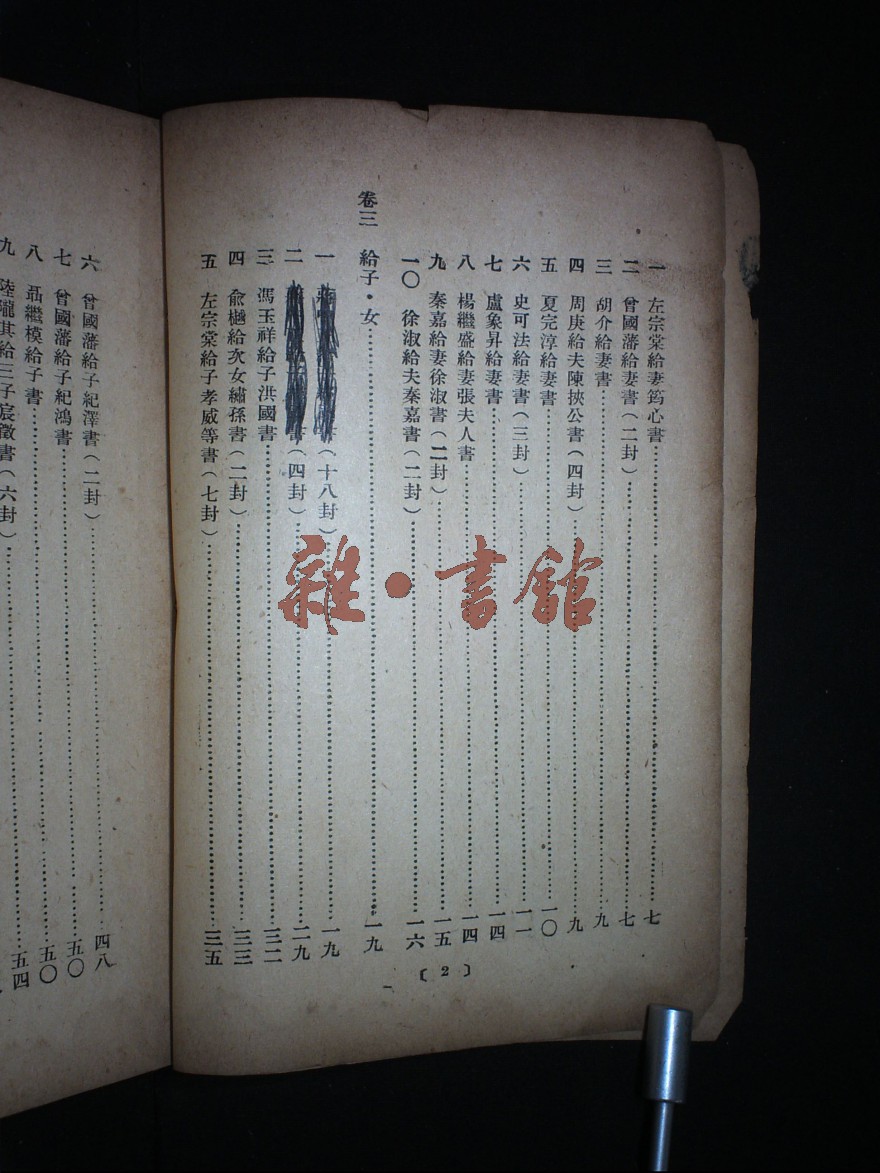 一 左宗棠給妻筠心書……七
二 曾國藩給妻書(二封)……七
三 胡介給妻書……九
四 周庚給夫陳挾公書(四封)……九
五 夏完淳給妻書……一〇
六 史可法給妻書(三封)……一一
七 盧象昇給妻書……一四
八 楊繼盛給妻張夫人書……一四
九 秦嘉給妻徐淑書(二封)……一五
一〇 徐淑給夫秦嘉書(二封)……一六
卷三 給子・女……一九
一 書(十八封)……一九
二 書(四封)……二九
三 馮玉祥給子洪國書……三二
四 俞樾給次女繡孫書(二封)……三三
五 左宗棠給子孝威等書(七封)……三五
〔2〕
六 曾國藩給子紀澤書(二封)……四八
七 曾國藩給子紀鴻書……五〇
八 聶繼模給子書……五〇
九 陸隴其給三子宸徵書(六封)……五四
雜・書館